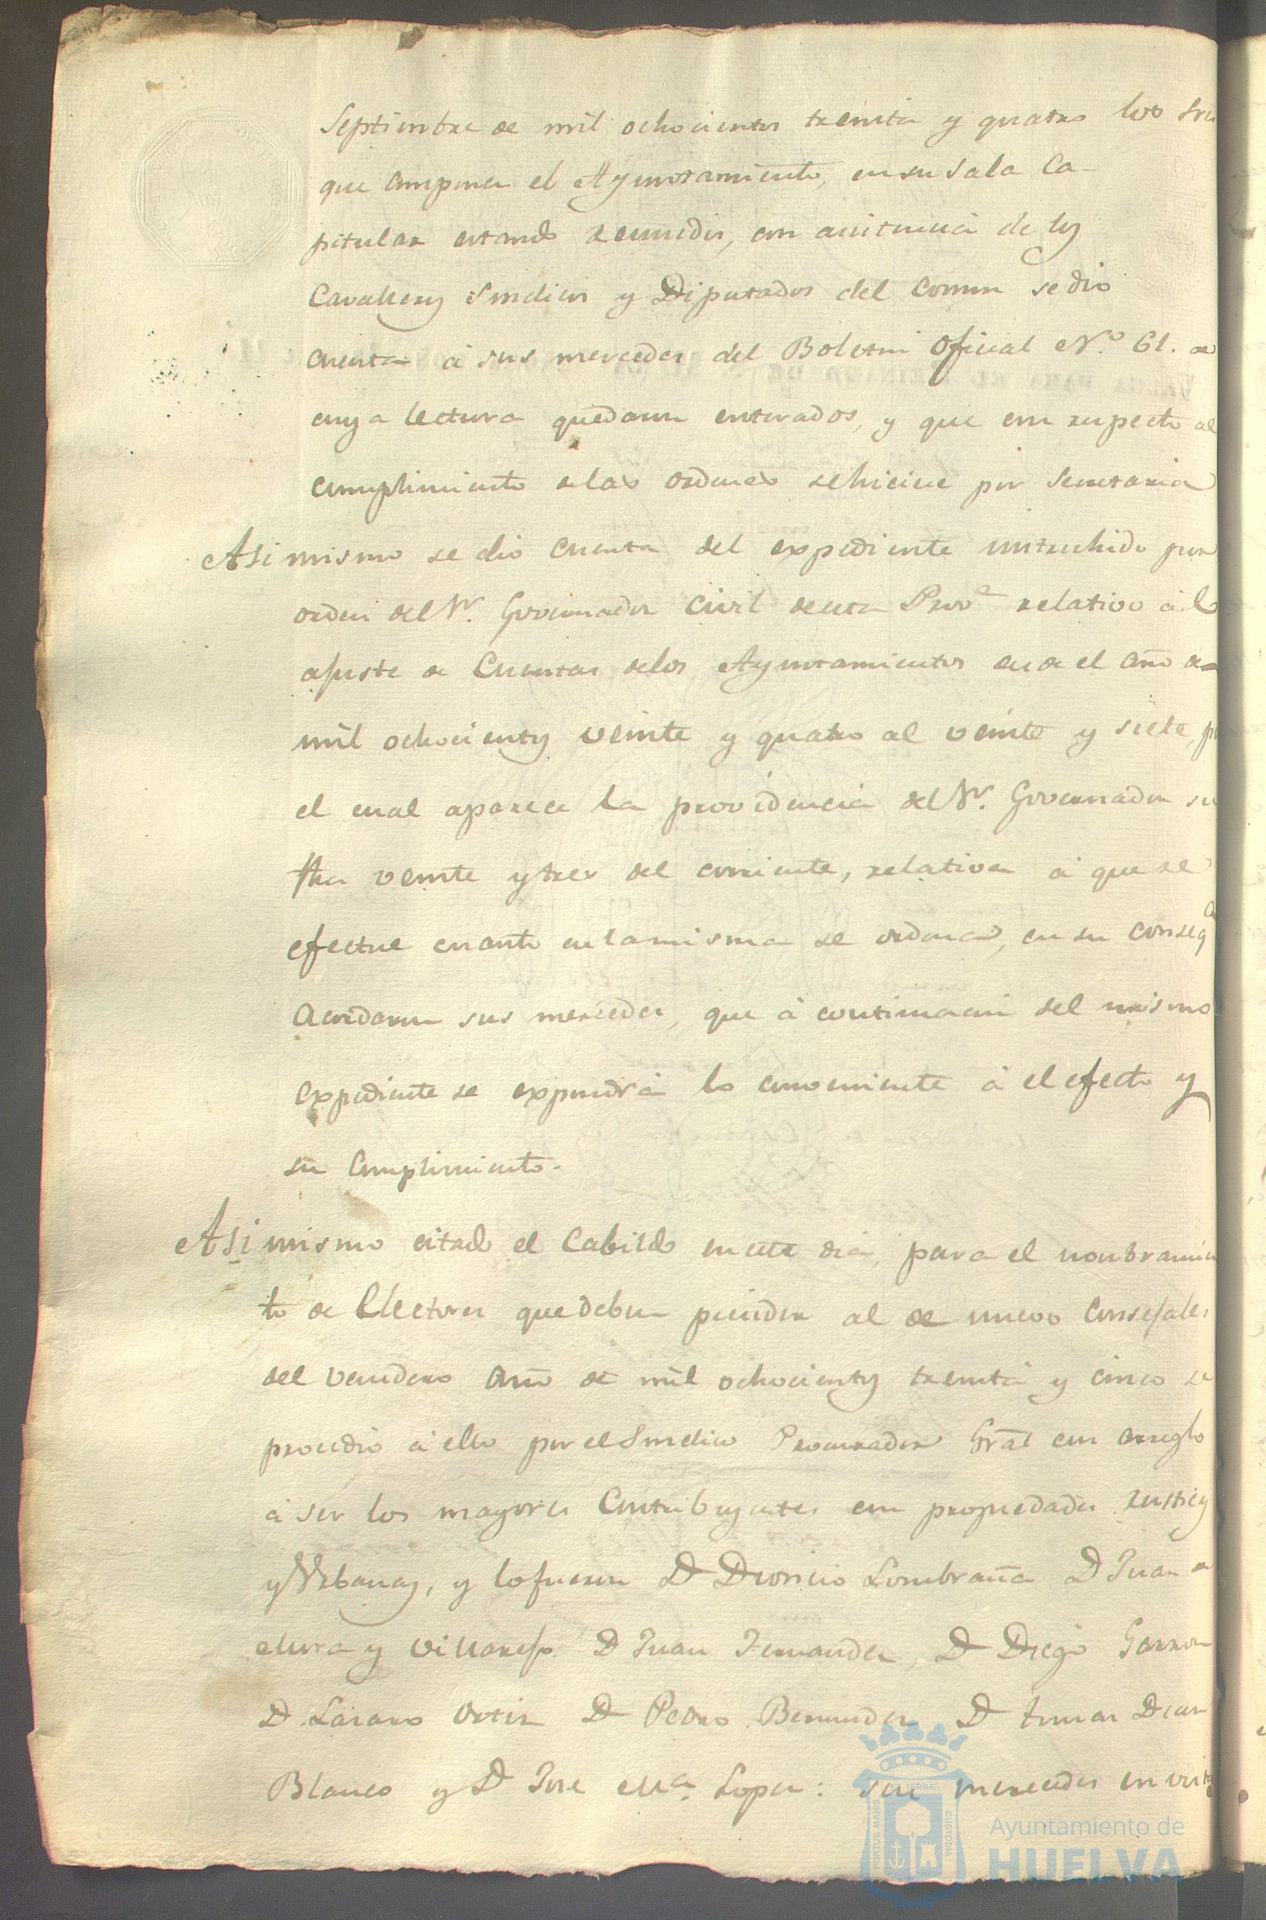 Septiembre de mil ochocientos treinta y quatro los Sres
que componen el Ayuntamiento, en su Sala Ca-
pitular estando reunidos, con asistencia de los
Cavalleros Sindicos y Diputados del Comun se dio
cuenta á sus mercedes del Boletin Oficial N.º 61. de
cuya lectura quedaron enterados, y que con respecto al
cumplimiento de las ordenes se hiciese por Secretaria
Asi mismo se dio cuenta del expediente instruhido por
orden del Sr. Governador Civil de esta Prova relativo á el
ajuste de Cuentas de los Ayuntamientos desde el año de
mil ochocientos veinte y quatro al veinte y siete, por
el cual aparece la providencia del Sr. Governador su
fha veinte y tres del corriente, relativa á que se
efectue cuanto en la misma se ordena, en su conseqa
Acordaron sus mercedes, que á continuacion del mismo
expediente se expondrá lo combeniente á el efecto y
su cumplimiento.
Asi mismo citado el Cabildo en este dia, para el nombramien
to de Electores que deben preceder al de nuevos Consejales
del venidero año de mil ochocientos treinta y cinco se
procedio á ello por el Sindico Procurador Gral con arreglo
á ser los mayores Contribuyentes con propiedades rusticas
y Urbanas, y lo fueron D Dionicio Lombraña D Juan de
Mora y Villarejo D Juan Fernandez, D Diego Garzon
D. Lázaro Ortiz D Pedro Bermudez D Tomas Diaz
Blanco y D Jose Ma. Lopez: sus mercedes en virtd
PORTUS MARIS
ET TERRAE
CUSTODIA
Ayuntamiento de
HUELVA